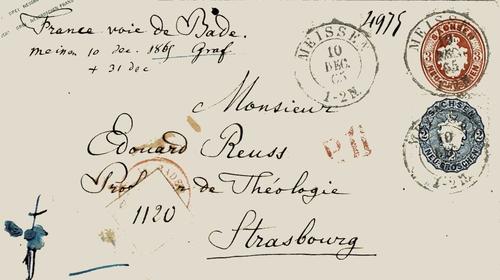 France voie de Bade.
meinen 10 dec. 1865 Graf
+ 31 dec
MEISSEN
10
DEC
65
1-2N.
MEISSEN
DEC
65
SACHSEN
3
3
NEUGROSCHEN
SACHSEN
2
NEUGROSCHEN
1-2N.
P.D
Monsieur
Edouard Reuss
de Théologie
1120
Strasbourg